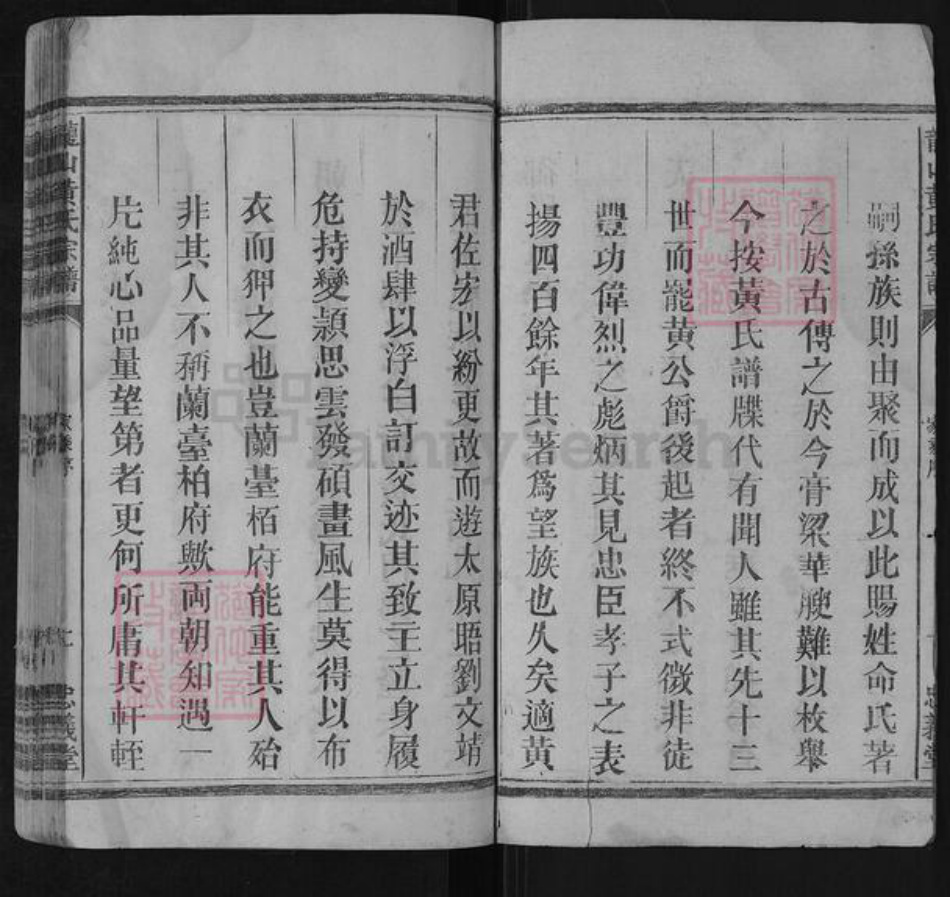 嗣孫族則由聚而成以此賜姓命氏著
之於古傳之於今膏粱華腴難以枚舉
今按黃氏譜牒代有聞人雖其先十三
世而罷黃公爵後起者終不式微非徒
豐功偉烈之彪炳其見忠臣孝子之表
揚四百餘年其著為望族也久矣適黃
君佐宏以紛更故而遊太原晤劉文靖
於酒肆以浮白訂交迹其致主立身履
危持變頴思雲發碩畫風生莫得以布
衣而狎之也豈蘭臺栢府能重其人殆
非其人不稱蘭臺柏府歟両朝知遇一
片純心品量望第者更何所庸其軒輊
龍山黃氏宗譜
忠義堂
familysearch